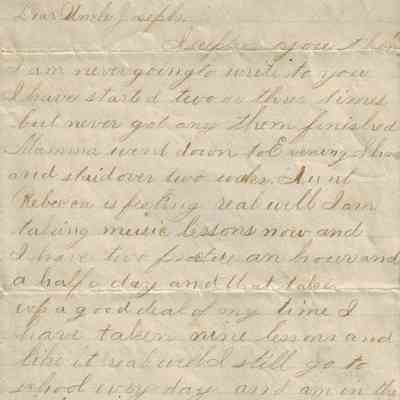 Dear Uncle Joseph.
I supose you think
I am never going to write to you
I have started two or three times
but never got any them finished
Mamma went down to
and staid over two weeks. Aunt
Rebecca is feeling real well I am
taking music lessons now and
I have two practice an hour and
a half a day and that takes
up a good deal of my time I
have taken nine lessons and
like it real well I still go to
school every day and am in the